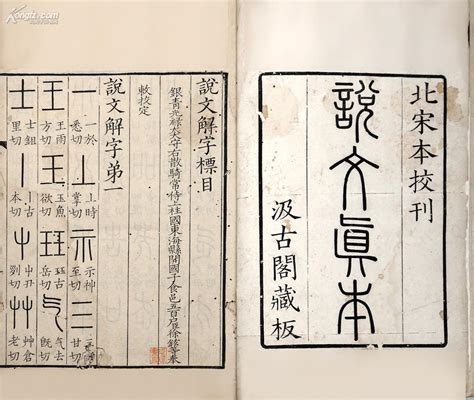 北宋本校刊
說文眞本
汲古閣藏板
說文解字標目
銀青光祿大夫守右散騎常侍上柱國東海縣開國子食邑五百戶臣徐鉉等奉
敕校定
說文解字弟一
一 一於悉切 丄 上時掌切 示 示神 三 甘切
王 王雨方切 王 玉魚欲切 玨 玨古岳切 气 气去切
士 士鉏里切 丨 丨古本切 屮 屮丑切 艸 艸倉老切
Kongfz.com